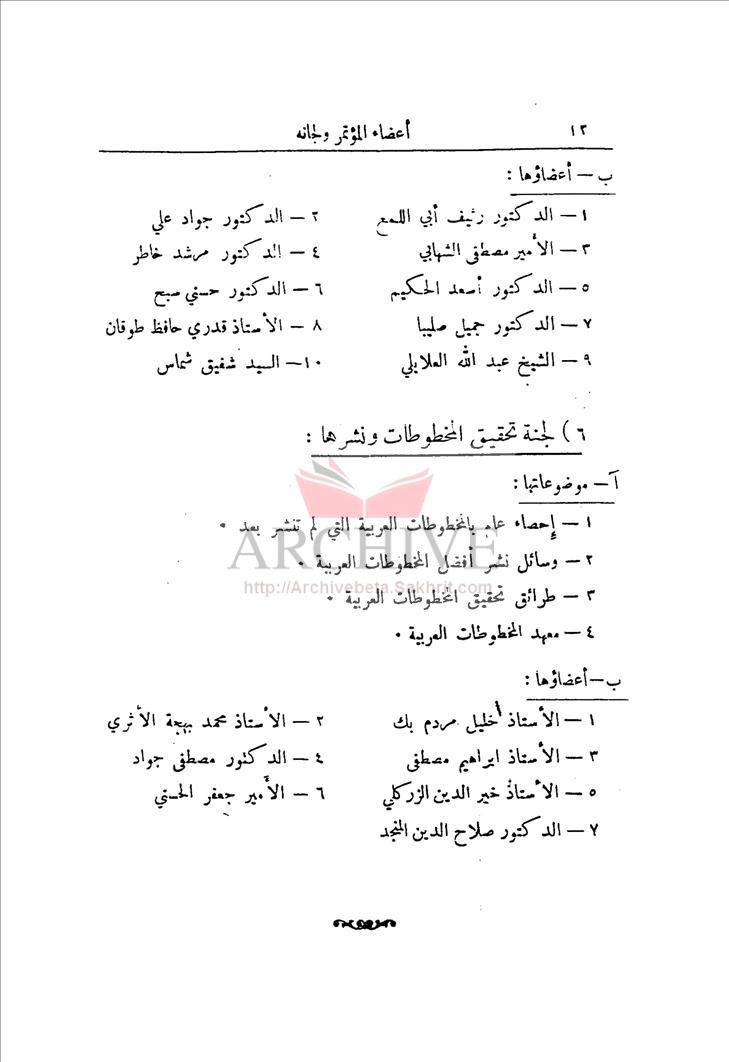 ١٢ أعضاء المؤتمر ولجانه
ب — أعضاؤها :
١ — الدكتور رئيف أبي اللمع ٢ — الدكتور جواد علي
٣ — الأمير مصطفى الشهابي ٤ — الدكتور مرشد خاطر
٥ — الدكتور أسعد الحكيم ٦ — الدكتور حسني سبح
٧ — الدكتور جميل صليبا ٨ — الأستاذ قدري حافظ طوقان
٩ — الشيخ عبد الله العلايلي ١٠ — السيد شفيق شماس
٦ ) لجنة تحقيق المخطوطات ونشرها :
آ — موضوعاتها :
١ — إحصاء عام بالمخطوطات العربية التي لم تنشر بعد .
ARCHIVE
٢ — وسائل نشر أفضل المخطوطات العربية .
http://Archivebeta.Sakhrit.com
٣ — طرائق تحقيق المخطوطات العربية .
٤ — معهد المخطوطات العربية .
ب — أعضاؤها :
١ — الأستاذ خليل مردم بك ٢ — الأستاذ محمد بهجة الأثري
٣ — الأستاذ ابراهيم مصطفى ٤ — الدكتور مصطفى جواد
٥ — الأستاذ خير الدين الزركلي ٦ — الأمير جعفر الحسني
٧ — الدكتور صلاح الدين المنجد